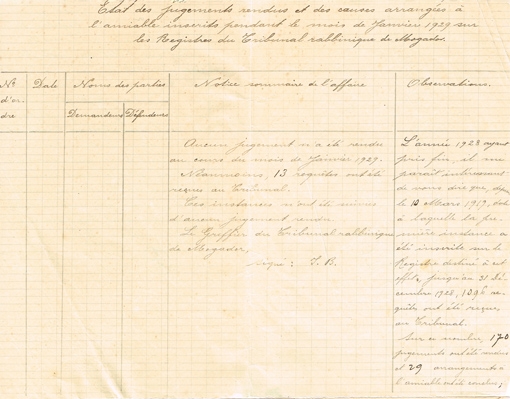 Etat des Jugements rendus et des causes arrangées à
l'amiable inscrits pendant le mois de Janvier 1929 sur
les Registres du Tribunal rabbinique de Mogador.
Nº d'or dre
Date
Noms des parties
Demandeurs
Défendeurs
Notice sommaire de l'affaire
Observations.
Aucun jugement n'a été rendu
au cours du mois de Janvier 1929.
Néanmoins, 13 requêtes ont été
reçues au Tribunal.
Ces instances n'ont été suivies
d'aucun jugement rendu.
Le Greffier du Tribunal rabbinique
de Mogador,
signé : J. B.
L'année 1928 ayant
pris fin, il me
parait intéressant
de vous dire que, depuis
le 10 Mars 1919, date
à laquelle la pre-
mière instance a
été inscrite sur le
Registre destiné à cet
effet, jusqu'au 31 dé-
cembre 1928, re-
quêtes ont été reçues
au Tribunal.
Sur ce nombre, 170
jugements ont été
et 29 arrangements à
l'amiable ont été rendus;